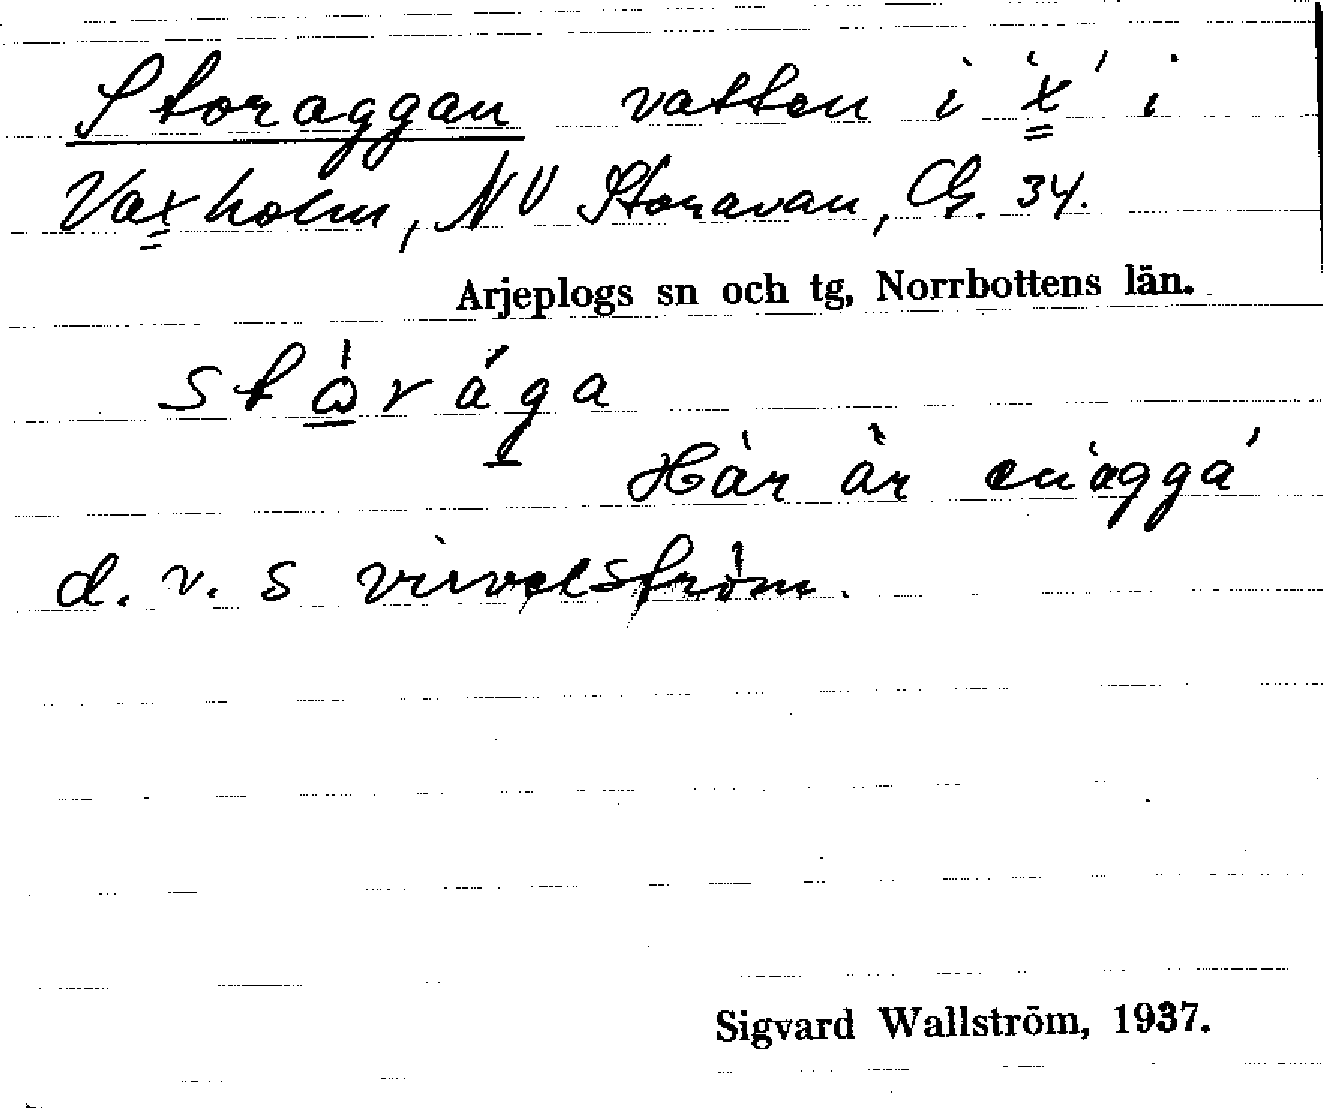 Storaggan vatten i 'x' i
Vaxholm, NV Storavan, Gs. 34.
Arjeplogs sn och tg, Norrbottens län.
stòrága
Här är en 'agga'
d. v. s virvelström.
Sigvard Wallström, 1937.